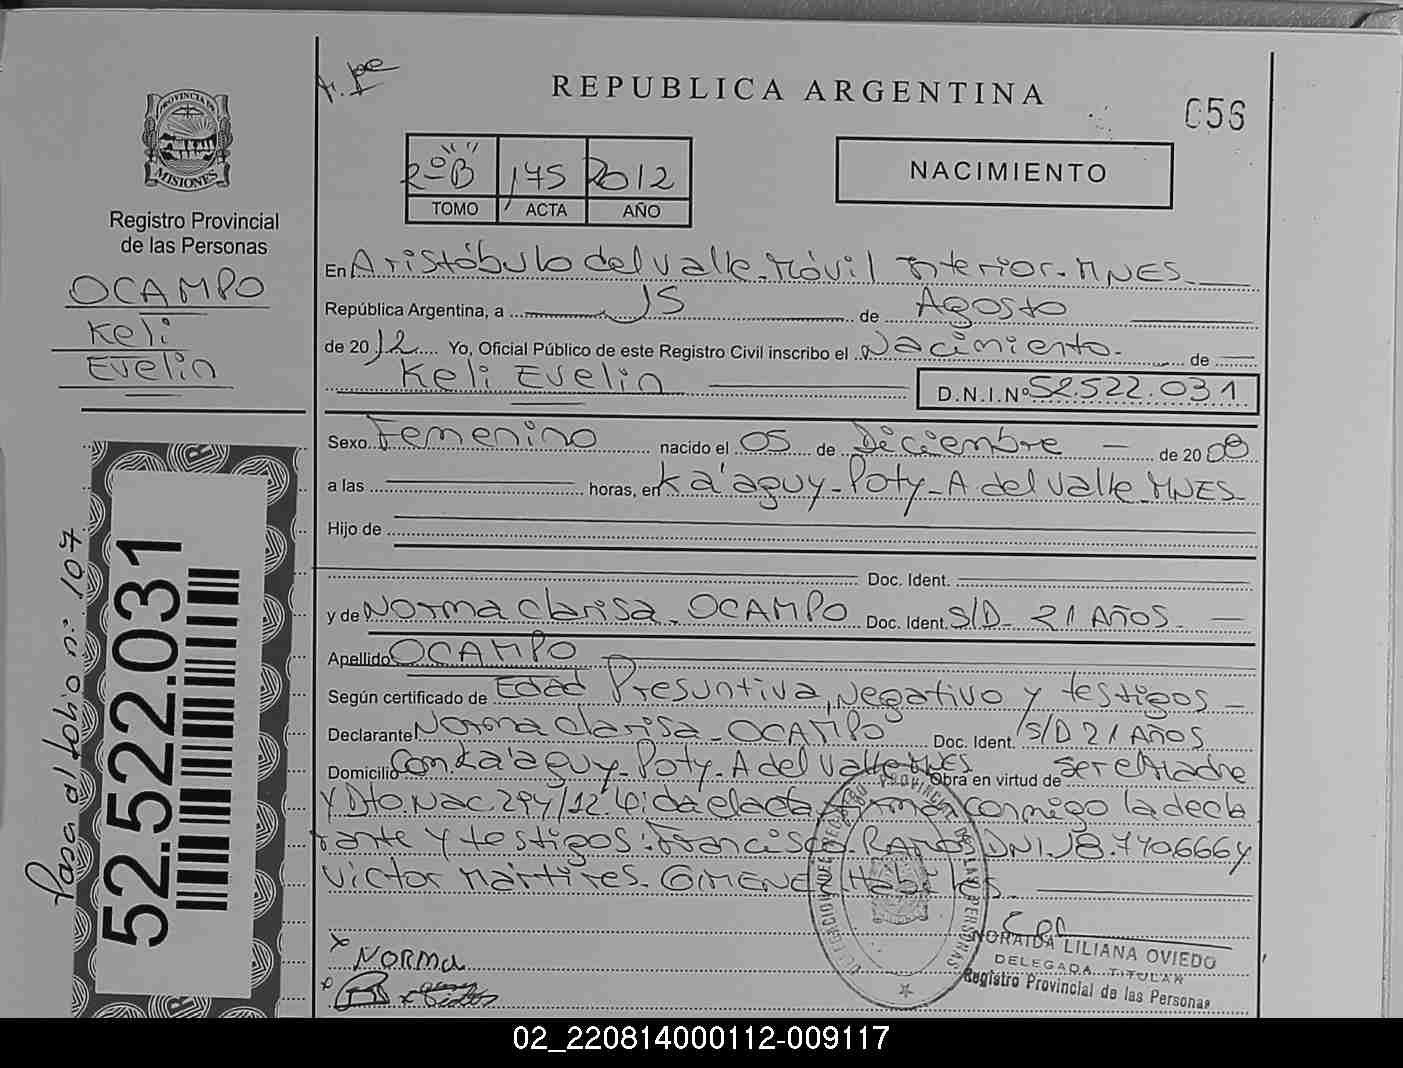 REPUBLICA ARGENTINA
056
PROVINCIA DE
MISIONES
Registro Provincial
de las Personas
OCAMPO
Keli
Evelin
2º "B" 175 2012
TOMO ACTA AÑO
NACIMIENTO
En Aristóbulo del Valle. Móvil Interior. MNES.
República Argentina, a 15 de Agosto
de 2012 Yo, Oficial Público de este Registro Civil inscribo el Nacimiento. de
Keli Evelin D.N.I.Nº 52.522.031
Sexo Femenino nacido el 05 de Diciembre de 2008
a las horas, en Ka'aguy-Poty-A del Valle MNES
Hijo de
Doc. Ident.
y de Norma Clarisa. OCAMPO Doc. Ident. S/D- 21 AÑOS
Apellido OCAMPO
Según certificado de Edad Presuntiva, Negativo y testigos
Declarante Norma Clarisa. OCAMPO Doc. Ident. S/D 21 AÑOS
Domicilio Com. Ka'aguy-Poty-A del Valle MNES Obra en virtud de ser el Madre
y Dto. Nac. 294/12. Leida el acta, firma conmigo la decla
rante y testigos: Francisco. RAMOS DNI. 18.740.666 y
Victor Mártires. GIMENEZ
Norma
NORAIDA LILIANA OVIEDO
DELEGADA TITULAR
Registro Provincial de las Personas
Pasa al folio nº: 107
52.522.031
02_220814000112-009117